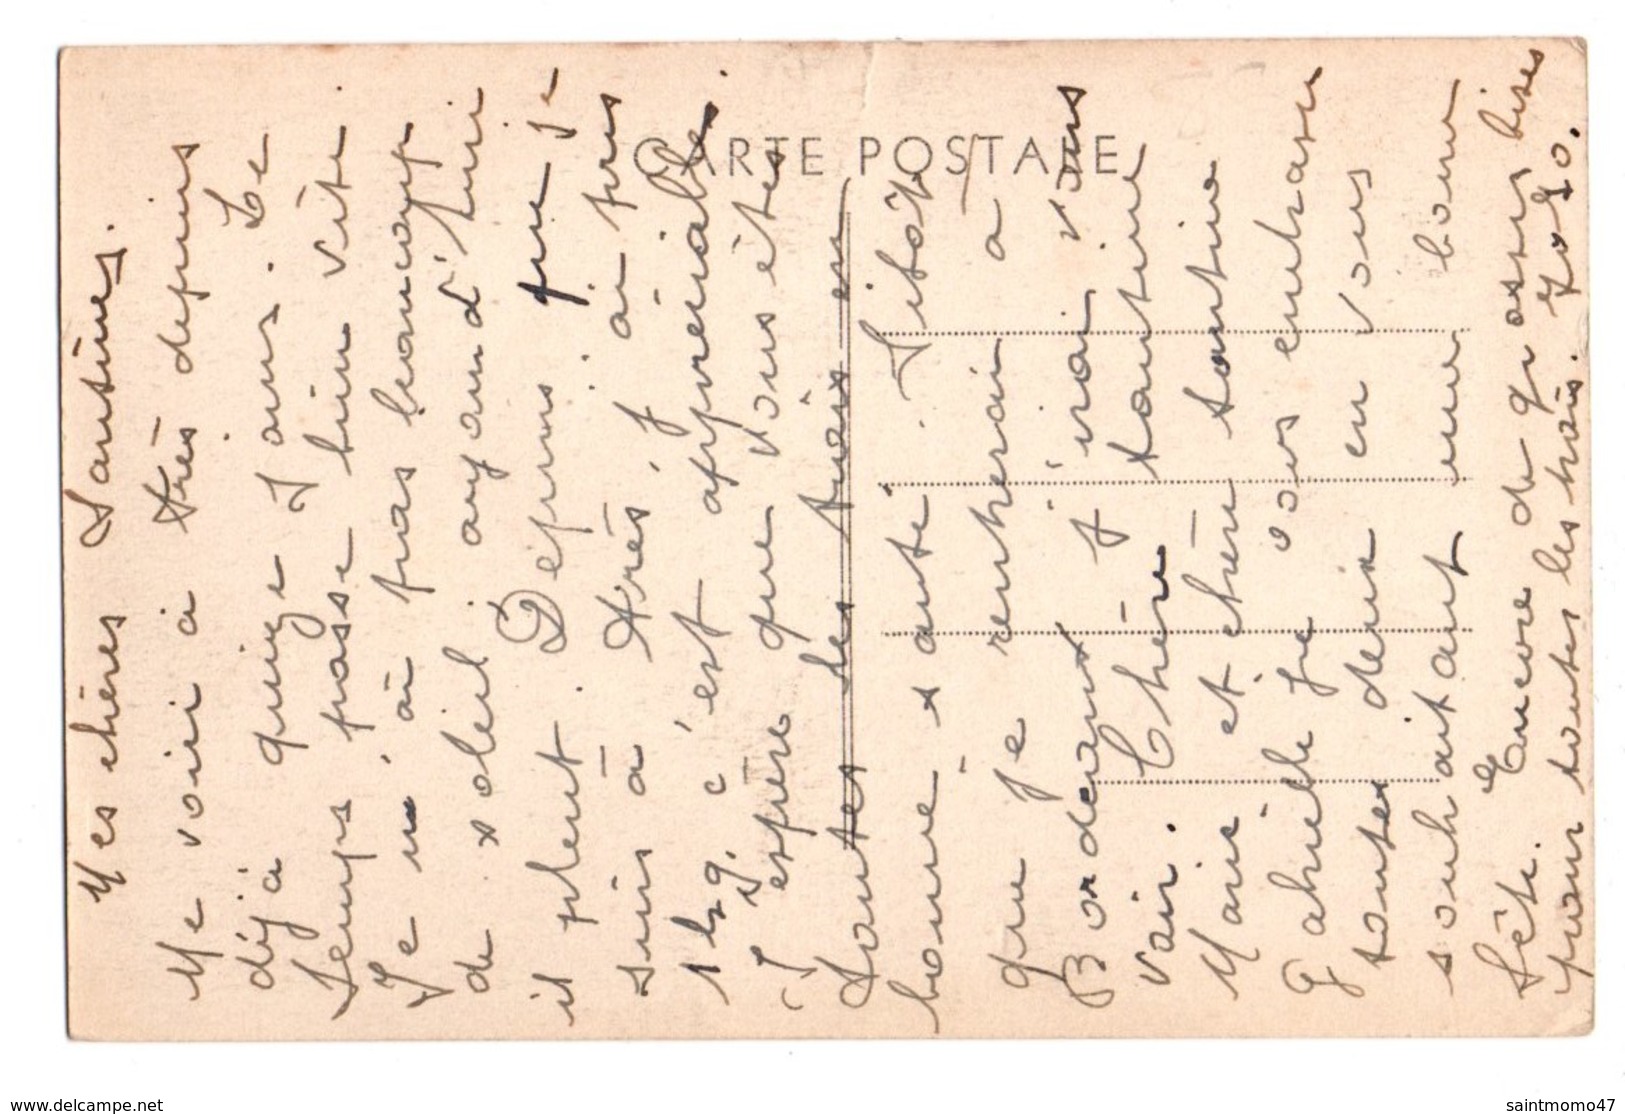 Mes chères Tantines.
Me voici à Arès depuis
déjà quinze jours. Le
temps passe bien vite.
Je n'ai pas beaucoup
de soleil, aujourd'hui
il pleut. Depuis que je
suis à Arès, j'ai pris
1 kg, c'est appréciable.
J'espère que vous êtes
toutes les trois en
bonne santé. Sitôt
que je rentrerai à
Bordeaux j'irai vous
voir. Chère tantine
Marie et chère tantine
Gabrielle je vous embrasse
toutes deux en vous
souhaitant une bonne
fête. Encore de grosses bises
pour toutes les trois. Yoyo.
CARTE POSTALE
www.delcampe.net
saintmomo47